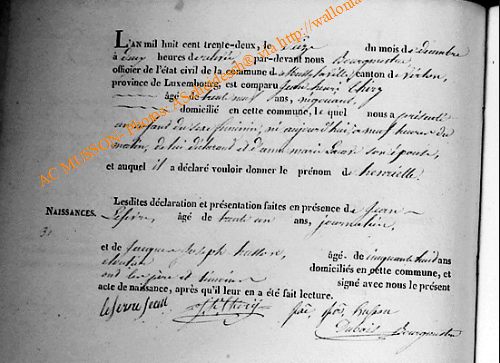 L'AN mil huit cent trente-deux, le seize du mois de décembre
à deux heures de relevée par-devant nous Bourgmestre
officier de l'état civil de la commune de canton de Virton,
province de Luxembourg, est comparu Jean henri Thiry
âgé de trente neuf ans, negociant,
domicilié en cette commune, le quel nous a présenté
un enfant du sexe féminin, né aujourd'hui, a neuf heures du
matin, de lui déclarant et d'anne marie son épouse,
et auquel il a déclaré vouloir donner le prénom de henriette.
Lesdites déclaration et présentation faites en présence de Jean
NAISSANCES. âgé de trente un ans, journalier,
et de Jacques Joseph âgé de cinquante huit ans
domiciliés en cette commune, et
ont les père et témoins signé avec nous le présent
acte de naissance, après qu'il leur en a été fait lecture.
Dubois Bourgmestre
AC MUSSON- Photos: AS Madedesh@ via http://wallonia